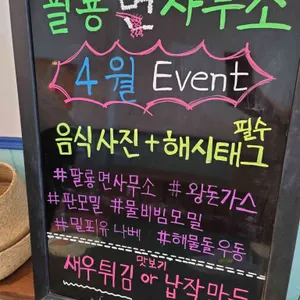 팔룡면사무소
4월 Event
음식사진+해시태그
필수
#팔룡면사무소 #왕돈가스
#판모밀 #물비빔모밀
#밀피유나베 #해물돌우동
맛보기
새우튀김 or 납작마드